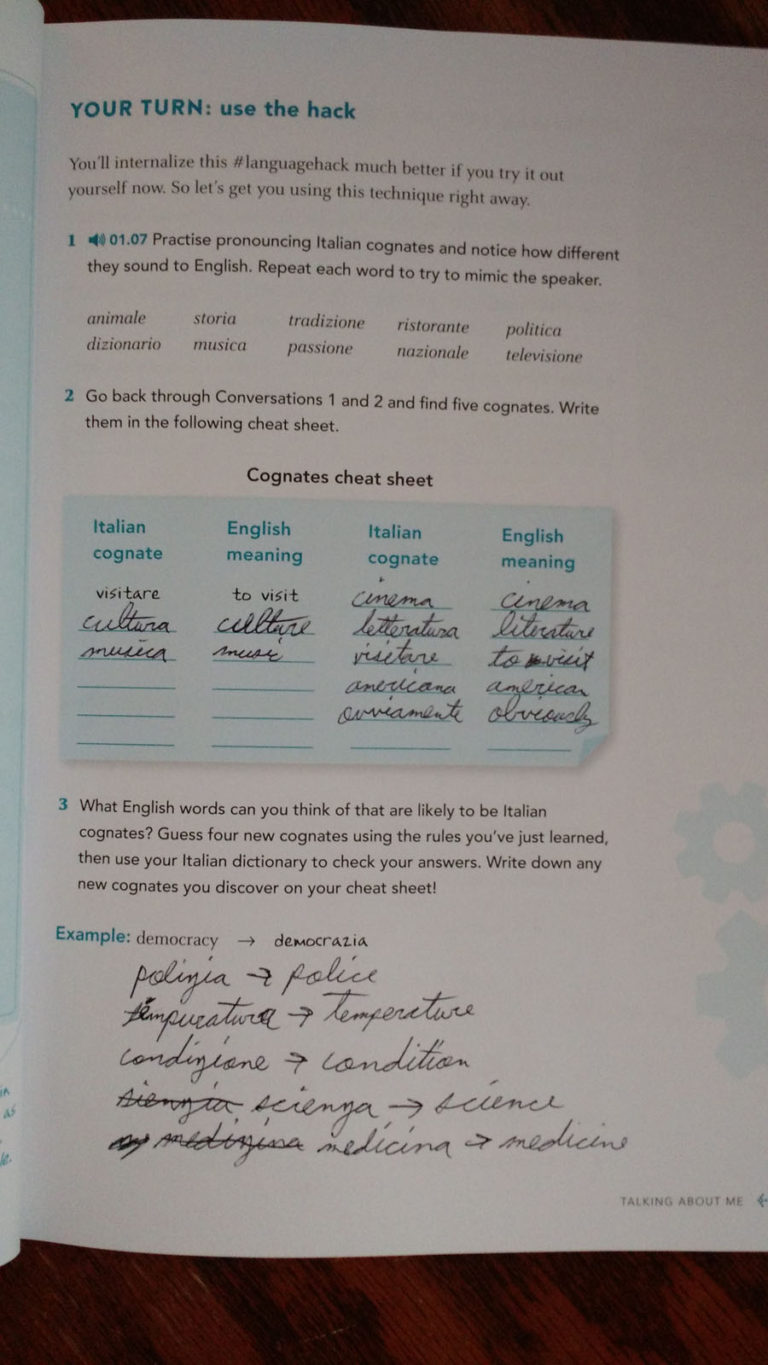 YOUR TURN: use the hack
You'll internalize this #languagehack much better if you try it out
yourself now. So let's get you using this technique right away.
1 01.07 Practise pronouncing Italian cognates and notice how different
they sound to English. Repeat each word to try to mimic the speaker.
animale storia tradizione ristorante politica
dizionario musica passione nazionale televisione
2 Go back through Conversations 1 and 2 and find five cognates. Write
them in the following cheat sheet.
Cognates cheat sheet
Italian English Italian English
cognate meaning cognate meaning
visitare to visit cinema cinema
cultura culture letteratura literature
musica music visitare to visit
americana american
ovviamente obviously
3 What English words can you think of that are likely to be Italian
cognates? Guess four new cognates using the rules you've just learned,
then use your Italian dictionary to check your answers. Write down any
new cognates you discover on your cheat sheet!
Example: democracy → democrazia
polizia → police
tempuratura → temperature
condizione → condition
sienzia scienza → science
medizina medicina → medicine
in
as
le.
TALKING ABOUT ME